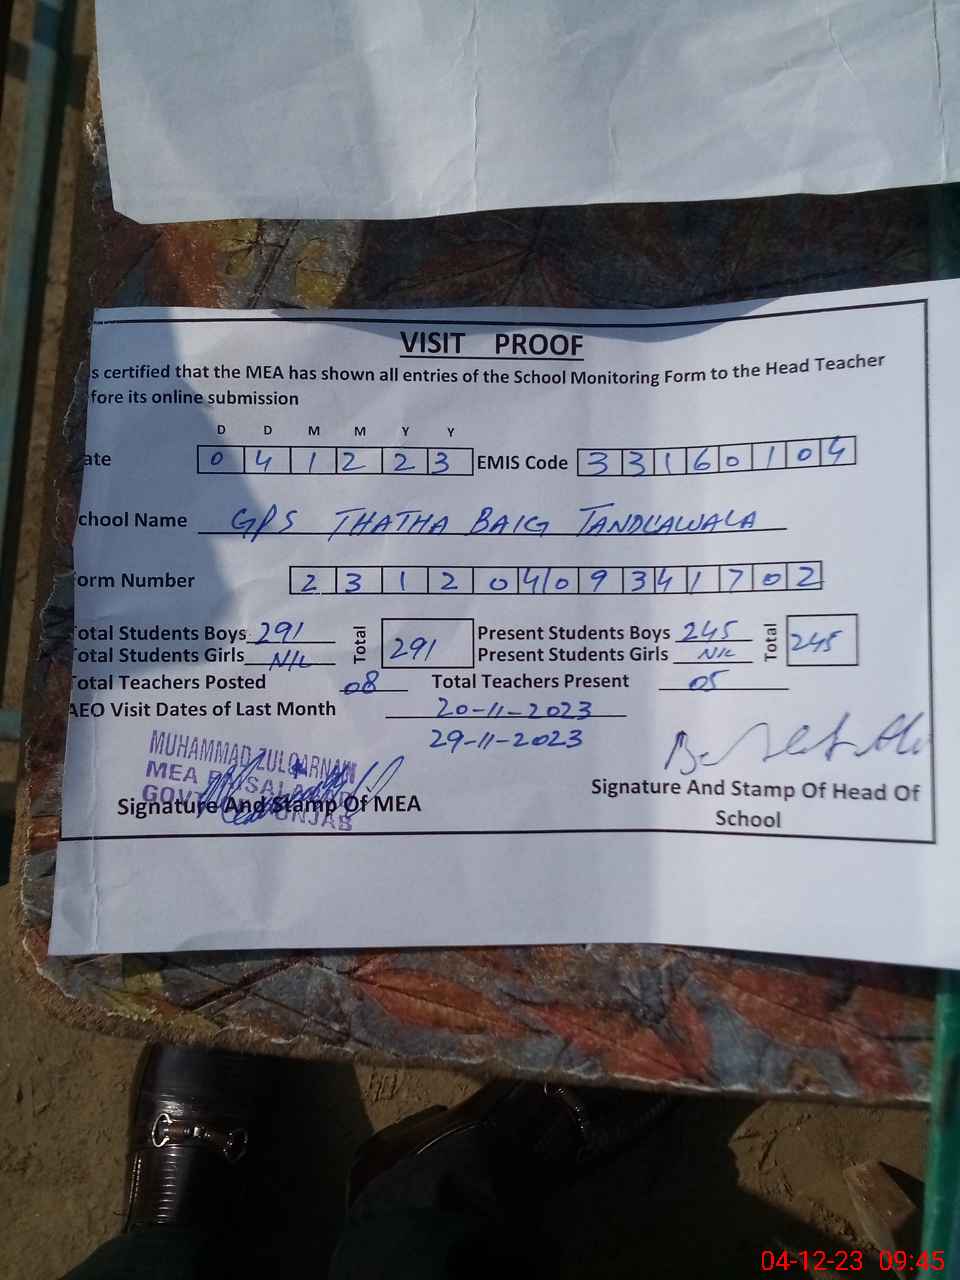 VISIT PROOF
s certified that the MEA has shown all entries of the School Monitoring Form to the Head Teacher
fore its online submission
D D M M Y Y
ate 0 4 1 2 2 3 EMIS Code 3 3 1 6 0 1 0 4
chool Name GPS THATHA BAIG TANDLIAWALA
orm Number 2 3 1 2 0 4 0 9 3 4 1 7 0 2
Total Students Boys 291 Total 291 Present Students Boys 245 Total 245
Total Students Girls NIL Present Students Girls NIL
Total Teachers Posted 08 Total Teachers Present 05
AEO Visit Dates of Last Month 20-11-2023
29-11-2023
MUHAMMAD ZULQARNAIN
MEA
GOVT PUNJAB
Signature And Stamp Of MEA
Signature And Stamp Of Head Of
School
04-12-23 09:45